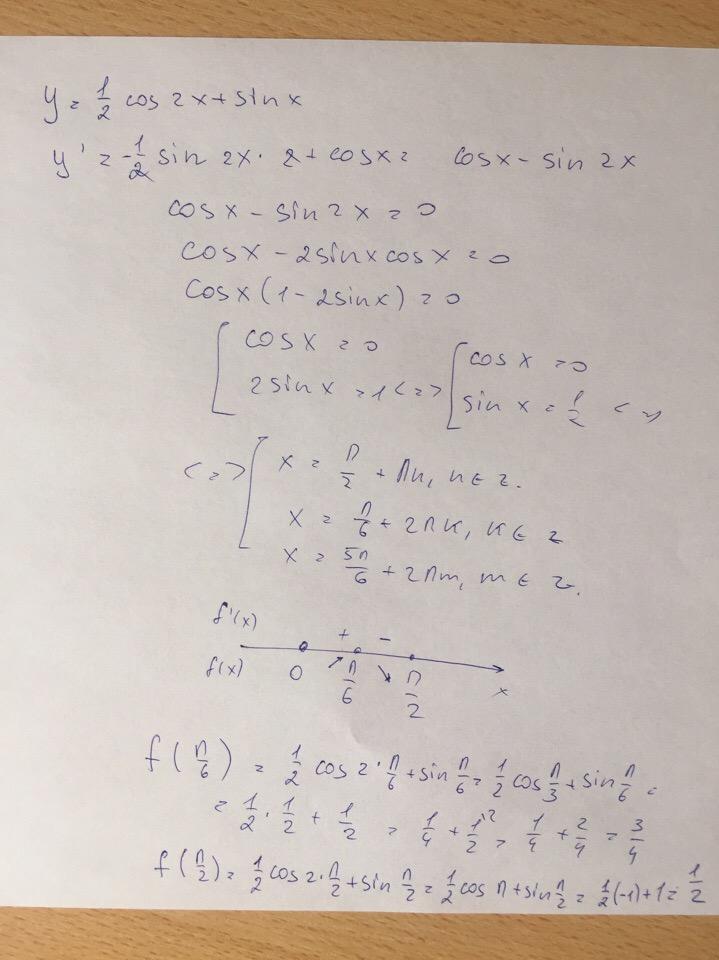 y = 1/2 cos 2x + sin x
y' = -1/2 sin 2x · 2 + cos x = cos x - sin 2x
cos x - sin 2x = 0
cos x - 2 sin x cos x = 0
cos x (1 - 2 sin x) = 0
[ cos x = 0 [ cos x = 0
2 sin x = 1 <=> sin x = 1/2 <=>
<=> [ x = π/2 + πn, n ∈ z.
x = π/6 + 2πk, k ∈ z
x = 5π/6 + 2πm, m ∈ z.
f'(x) + -
f(x) 0 ↗ π/6 ↘ π/2 x
f(π/6) = 1/2 cos 2 · π/6 + sin π/6 = 1/2 cos π/3 + sin π/6 =
= 1/2 · 1/2 + 1/2 = 1/4 + 1/2 ^2 = 1/4 + 2/4 = 3/4
f(π/2) = 1/2 cos 2 · π/2 + sin π/2 = 1/2 cos π + sin π/2 = 1/2 (-1) + 1 = 1/2